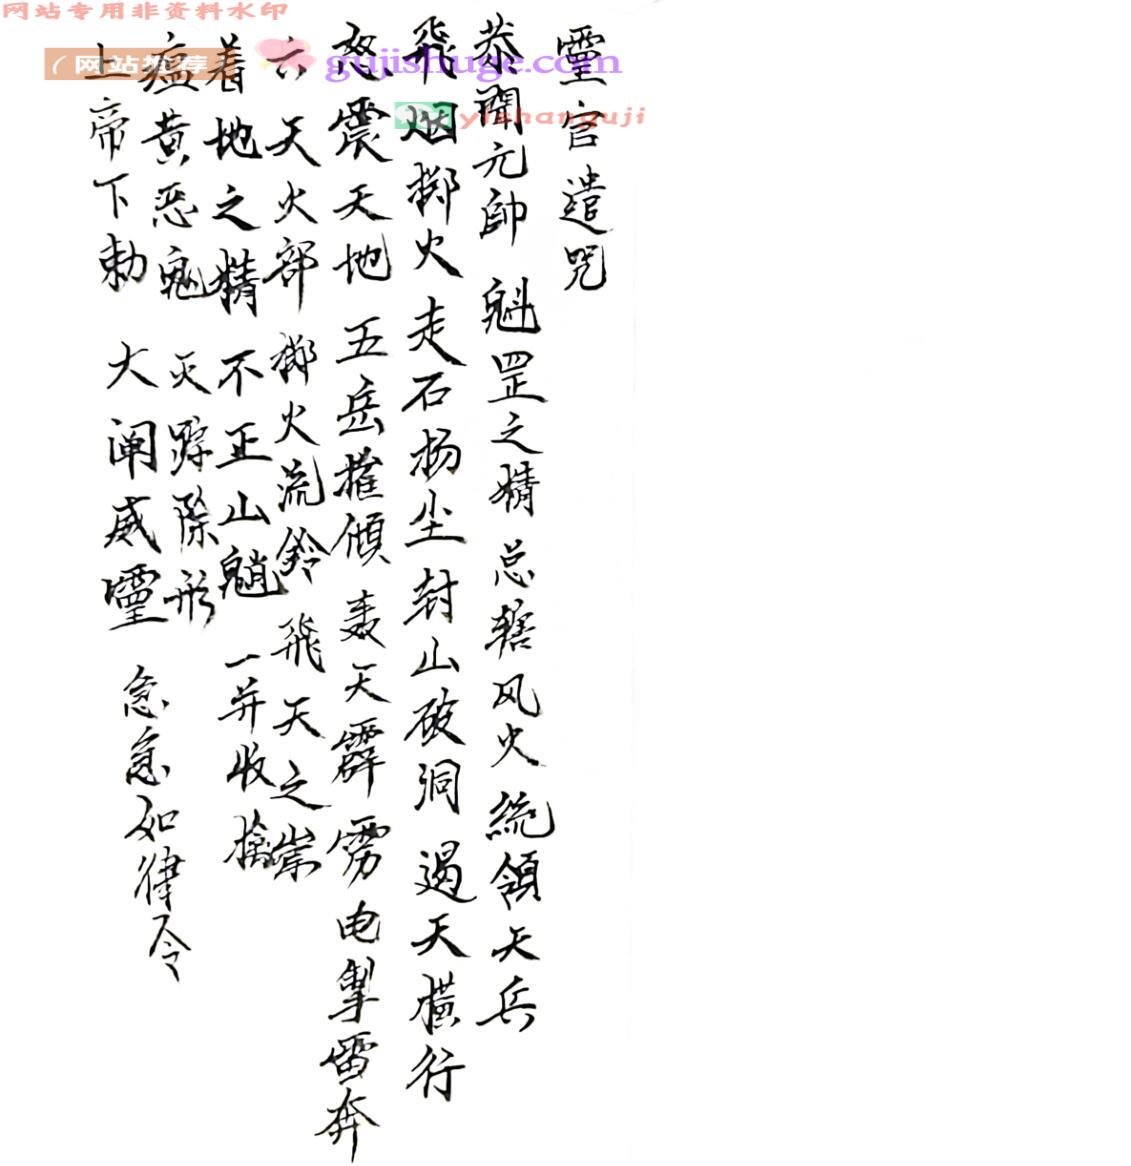 网站专用非资料水印
网站推荐
gujishuge.com
yishanguji
靈官遣咒
恭聞元帥 魁罡之精 总辖风火 統領天兵
飛烟擲火 走石扬尘 封山破洞 遏天横行
怒震天地 五岳摧傾 轰天霹雳 电掣雷奔
六天火部 擲火流鈴 飛天之祟
着地之精 不正山魈 一并收擒
瘟黄恶鬼 灭踪除形
上帝下勅 大阐威靈 急急如律令